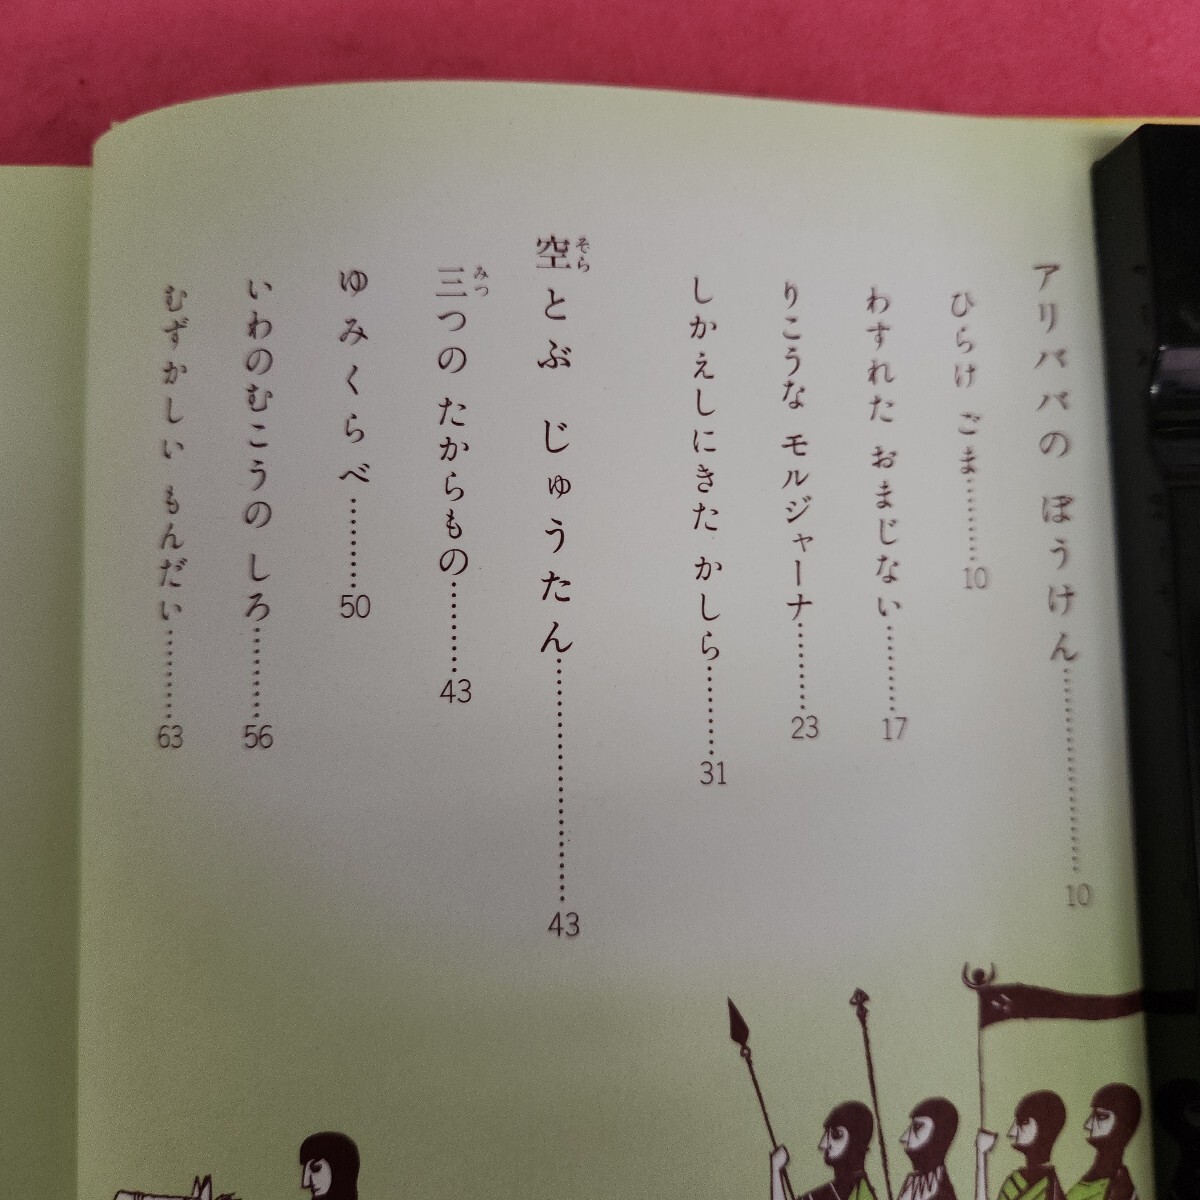 アリババの ぼうけん……………………10
ひらけ ごま………10
わすれた おまじない………17
りこうな モルジャーナ………23
しかえしにきた かしら………31
空とぶ じゅうたん……………………43
そら
三つの たからもの………43
みつ
ゆみくらべ………50
いわのむこうの しろ………56
むずかしい もんだい………63